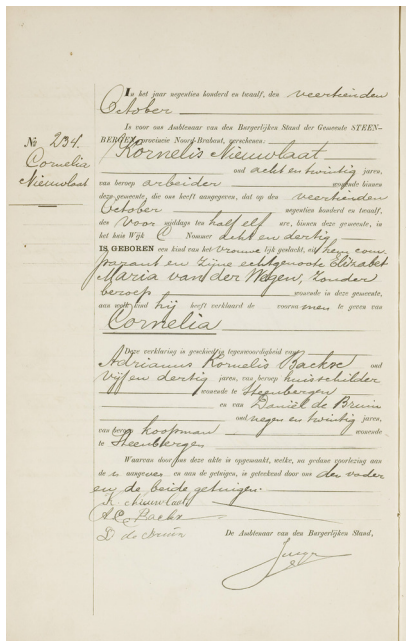 In het jaar negentien honderd en twaalf, den veertienden
October
Is voor ons Ambtenaar van den Burgerlijken Stand der Gemeente STEEN-
BERGEN, provincie Noord-Brabant, verschenen:
No 234.
Cornelia
Nieuwlaat
Kornelis Nieuwlaat
oud acht en twintig jaren,
van beroep arbeider wonende binnen
deze gemeente, die ons heeft aangegeven, dat op den veertienden
October negentien honderd en twaalf,
des voor middags ten half elf ure, binnen deze gemeente, in
het huis Wijk C Nommer acht en dertig
IS GEBOREN een kind van het vrouwelijk geslacht, uit hem com-
parant en zijne echtgenoote Elizabet
Maria van der Wegen, zonder
beroep wonende in deze gemeente,
aan welk kind hij heeft verklaard de voornamen te geven van
Cornelia
Deze verklaring is geschied in tegenwoordigheid van
Adrianus Kornelis Backx oud
vijf en dertig jaren, van beroep huisschilder
wonende te Steenbergen
en van Daniël de Bruin
oud negen en twintig jaren,
van beroep koopman wonende
te Steenbergen
Waarvan door ons deze akte is opgemaakt, welke, na gedane voorlezing aan
de aangever en aan de getuigen, is geteekend door ons den vader
en de beide getuigen.
K Nieuwlaat
A.C. Backx
D. de Bruin
De Ambtenaar van den Burgerlijken Stand,